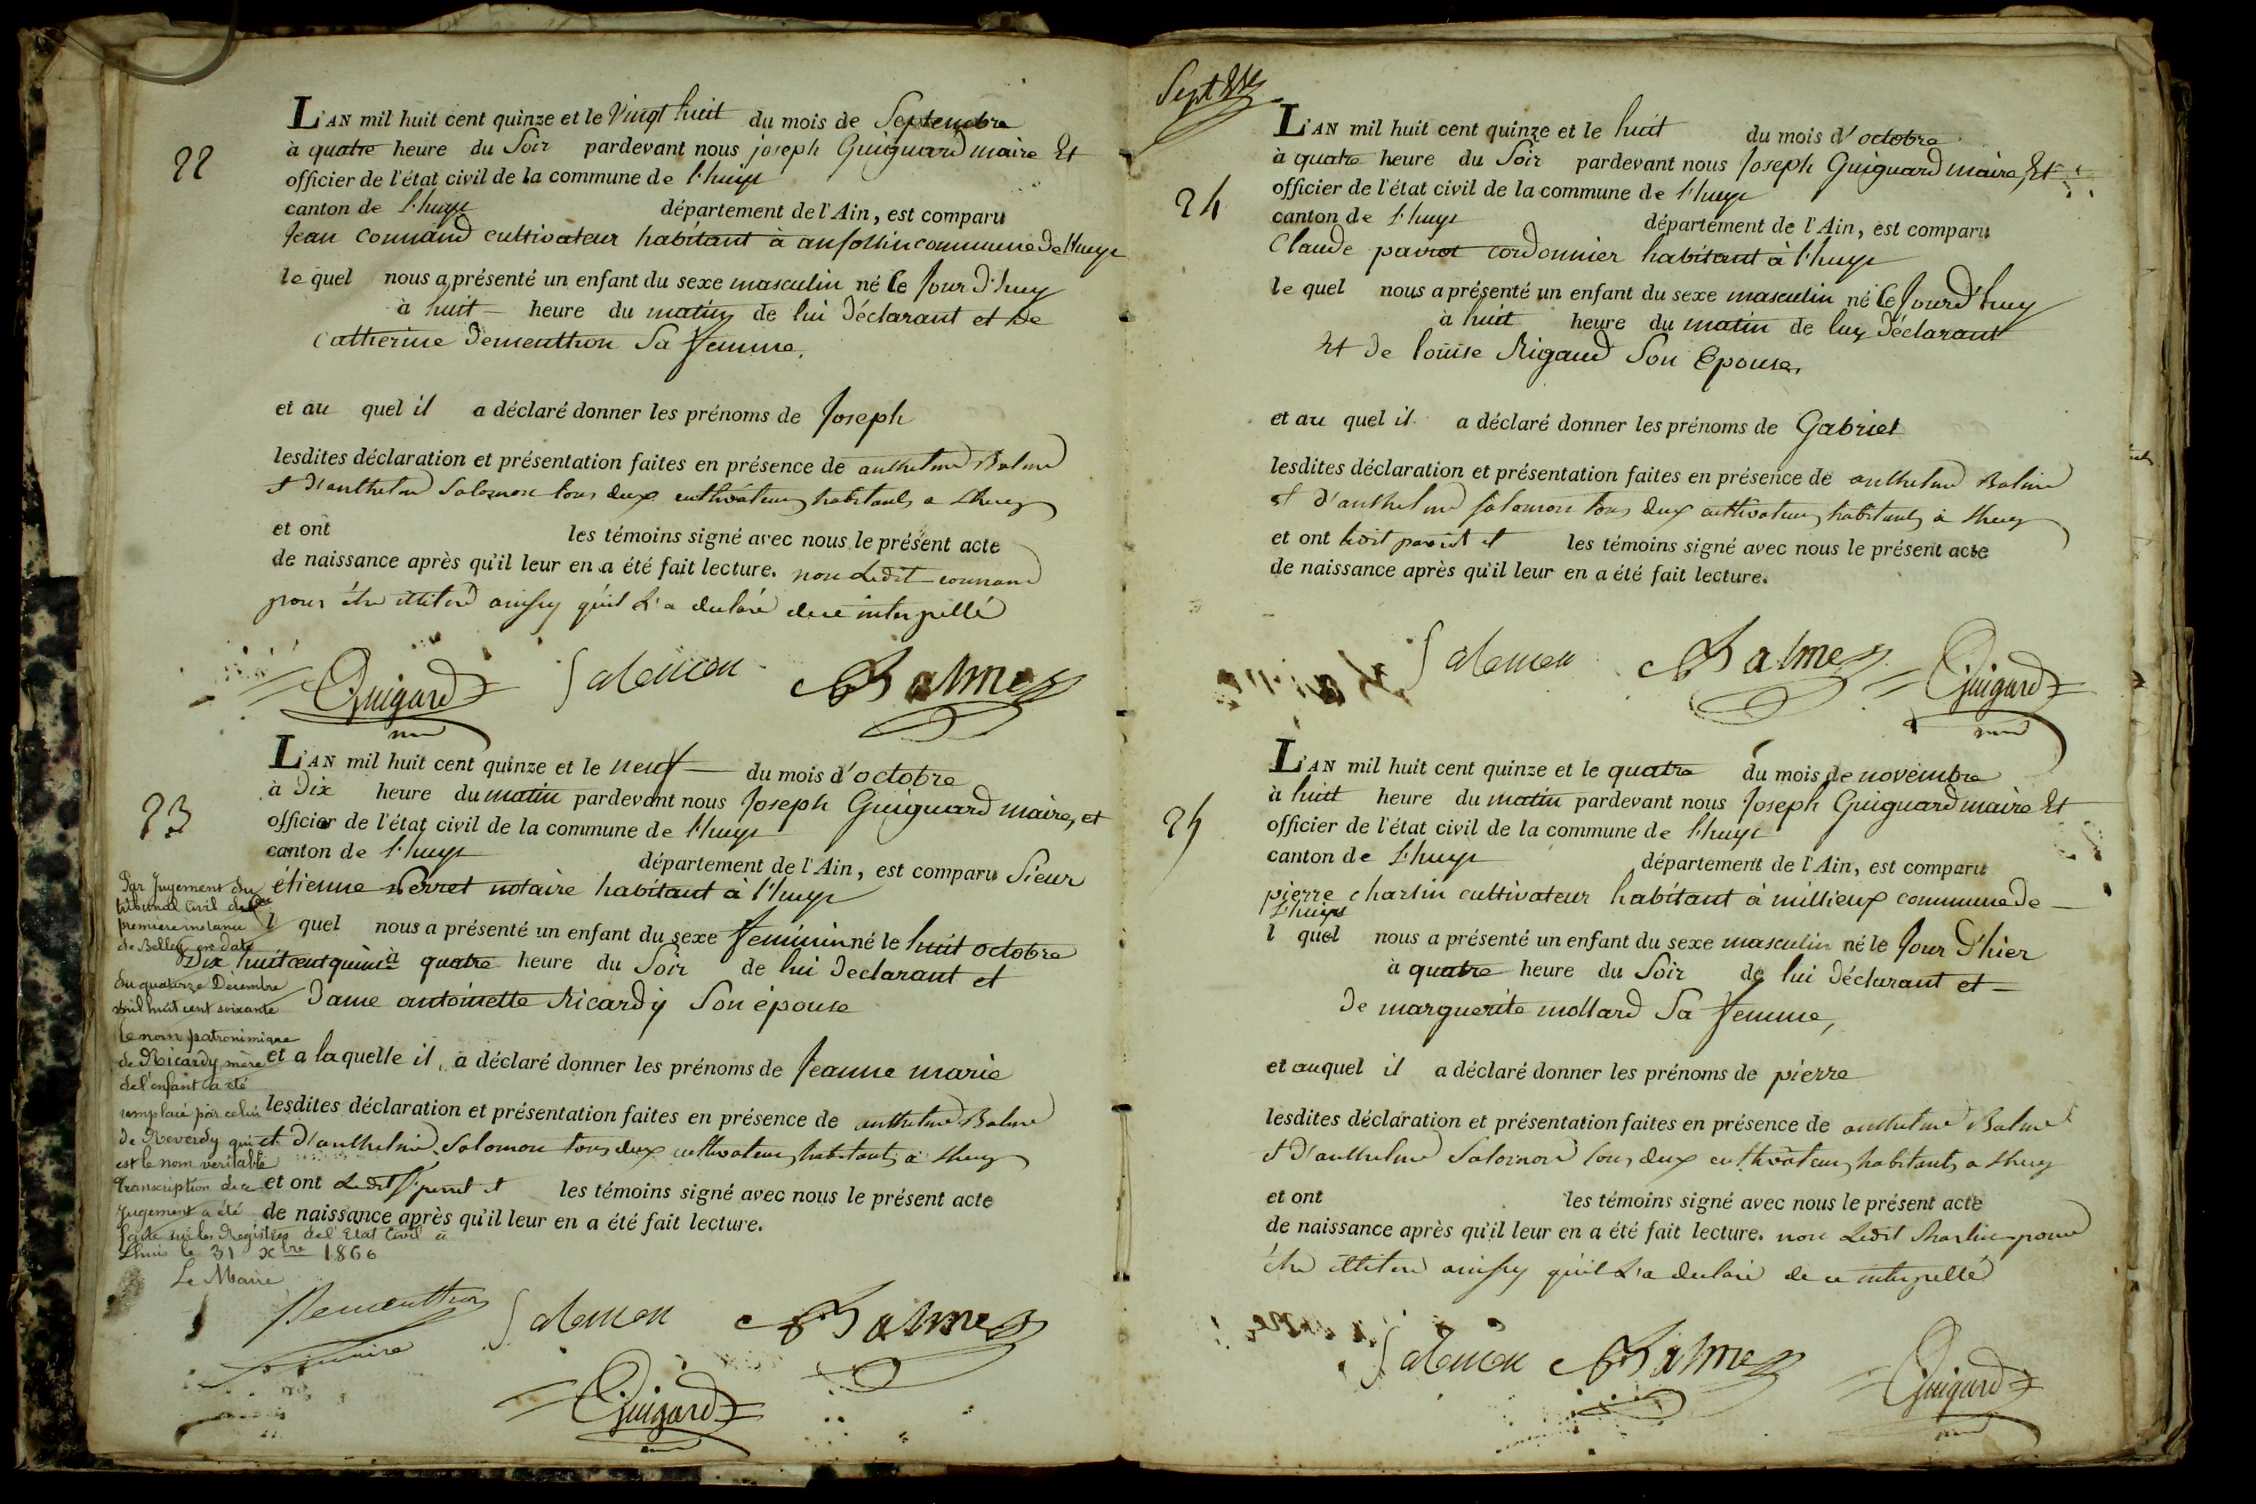 22
L'AN mil huit cent quinze et le Vingt huit du mois de Septembre
à quatre heure du Soir pardevant nous joseph Guiguard maire Et
officier de l'état civil de la commune de Lhuys
canton de Lhuys département de l'Ain, est comparu
Jean Connand cultivateur habitant à ansollin commune de Lhuys
le quel nous a présenté un enfant du sexe masculin né le Jour d'huy
à huit heure du matin de lui Déclarant et De
Catherine Dementhon Sa femme.
et au quel il a déclaré donner les prénoms de Joseph
lesdites déclaration et présentation faites en présence de anthelme Balme
et d'anthelme Salomon tous deux cultivateurs habitants a Lhuys
et ont les témoins signé avec nous le présent acte
de naissance après qu'il leur en a été fait lecture. non Ledit connand
pour être illitéré ainsy qu'il L'a declaré de ce interpellé
Guigard Salomon Balme
23
L'AN mil huit cent quinze et le neuf du mois d'octobre
à Dix heure du matin pardevant nous Joseph Guiguard maire, et
officier de l'état civil de la commune de Lhuys
canton de Lhuys département de l'Ain, est comparu Sieur
étienne Perret notaire habitant à Lhuys
l quel nous a présenté un enfant du sexe feminin né le huit octobre
Dix huit cent quinze à quatre heure du Soir de lui Declarant et
Dame antoinette Ricardy Son épouse
et a laquelle il a déclaré donner les prénoms de Jeanne marie
lesdites déclaration et présentation faites en présence de anthelme Balme
et d'anthelme Salomon tous deux cultivateurs habitants a Lhuys
et ont Ledit Sr perret et les témoins signé avec nous le présent acte
de naissance après qu'il leur en a été fait lecture.
Par Jugement du
tribunal Civil de
premiere instance
de Belley en date
du quatorze Décembre
mil huit cent soixante
le nom patronimique
de Ricardy mère
de l'enfant a été
remplacé par celui
de Reverdy qui
est le nom véritable
transcription du
Jugement a été
faite sur les Registres de l'Etat Civil à
Lhuis le 31 Xbre 1860
Le Maire
Dementhon Salomon Balme
Guigard
24
L'AN mil huit cent quinze et le huit du mois d'octobre
à quatre heure du Soir pardevant nous Joseph Guiguard maire, Et
officier de l'état civil de la commune de Lhuys
canton de Lhuys département de l'Ain, est comparu
Claude paviot cordonnier habitant à Lhuys
le quel nous a présenté un enfant du sexe masculin né le Jourd'huy
à huit heure du matin de luy Déclarant
Et de louise Rigaud Son Epouse,
et au quel il a déclaré donner les prénoms de Gabriel
lesdites déclaration et présentation faites en présence de anthelme Balme
et d'anthelme Salomon tous deux cultivateurs habitants à Lhuys
et ont ledit paviot et les témoins signé avec nous le présent acte
de naissance après qu'il leur en a été fait lecture.
Salomon Balme Guigard
25
L'AN mil huit cent quinze et le quatre du mois de novembre
à huit heure du matin pardevant nous Joseph Guiguard maire Et
officier de l'état civil de la commune de Lhuys
canton de Lhuys département de l'Ain, est comparu
pierre charlin cultivateur habitant à millieux commune de
Lhuys
l quel nous a présenté un enfant du sexe masculin né le Jour d'hier
à quatre heure du Soir de lui déclarant et
De marguerite mollard Sa femme,
et auquel il a déclaré donner les prénoms de pierre
lesdites déclaration et présentation faites en présence de anthelme Balme
et d'anthelme Salomon tous deux cultivateurs habitants a Lhuys
et ont les témoins signé avec nous le présent acte
de naissance après qu'il leur en a été fait lecture. non Ledit Charlin pour
être illitéré ainsy qu'il L'a declaré de ce interpellé
Salomon Balme Guigard